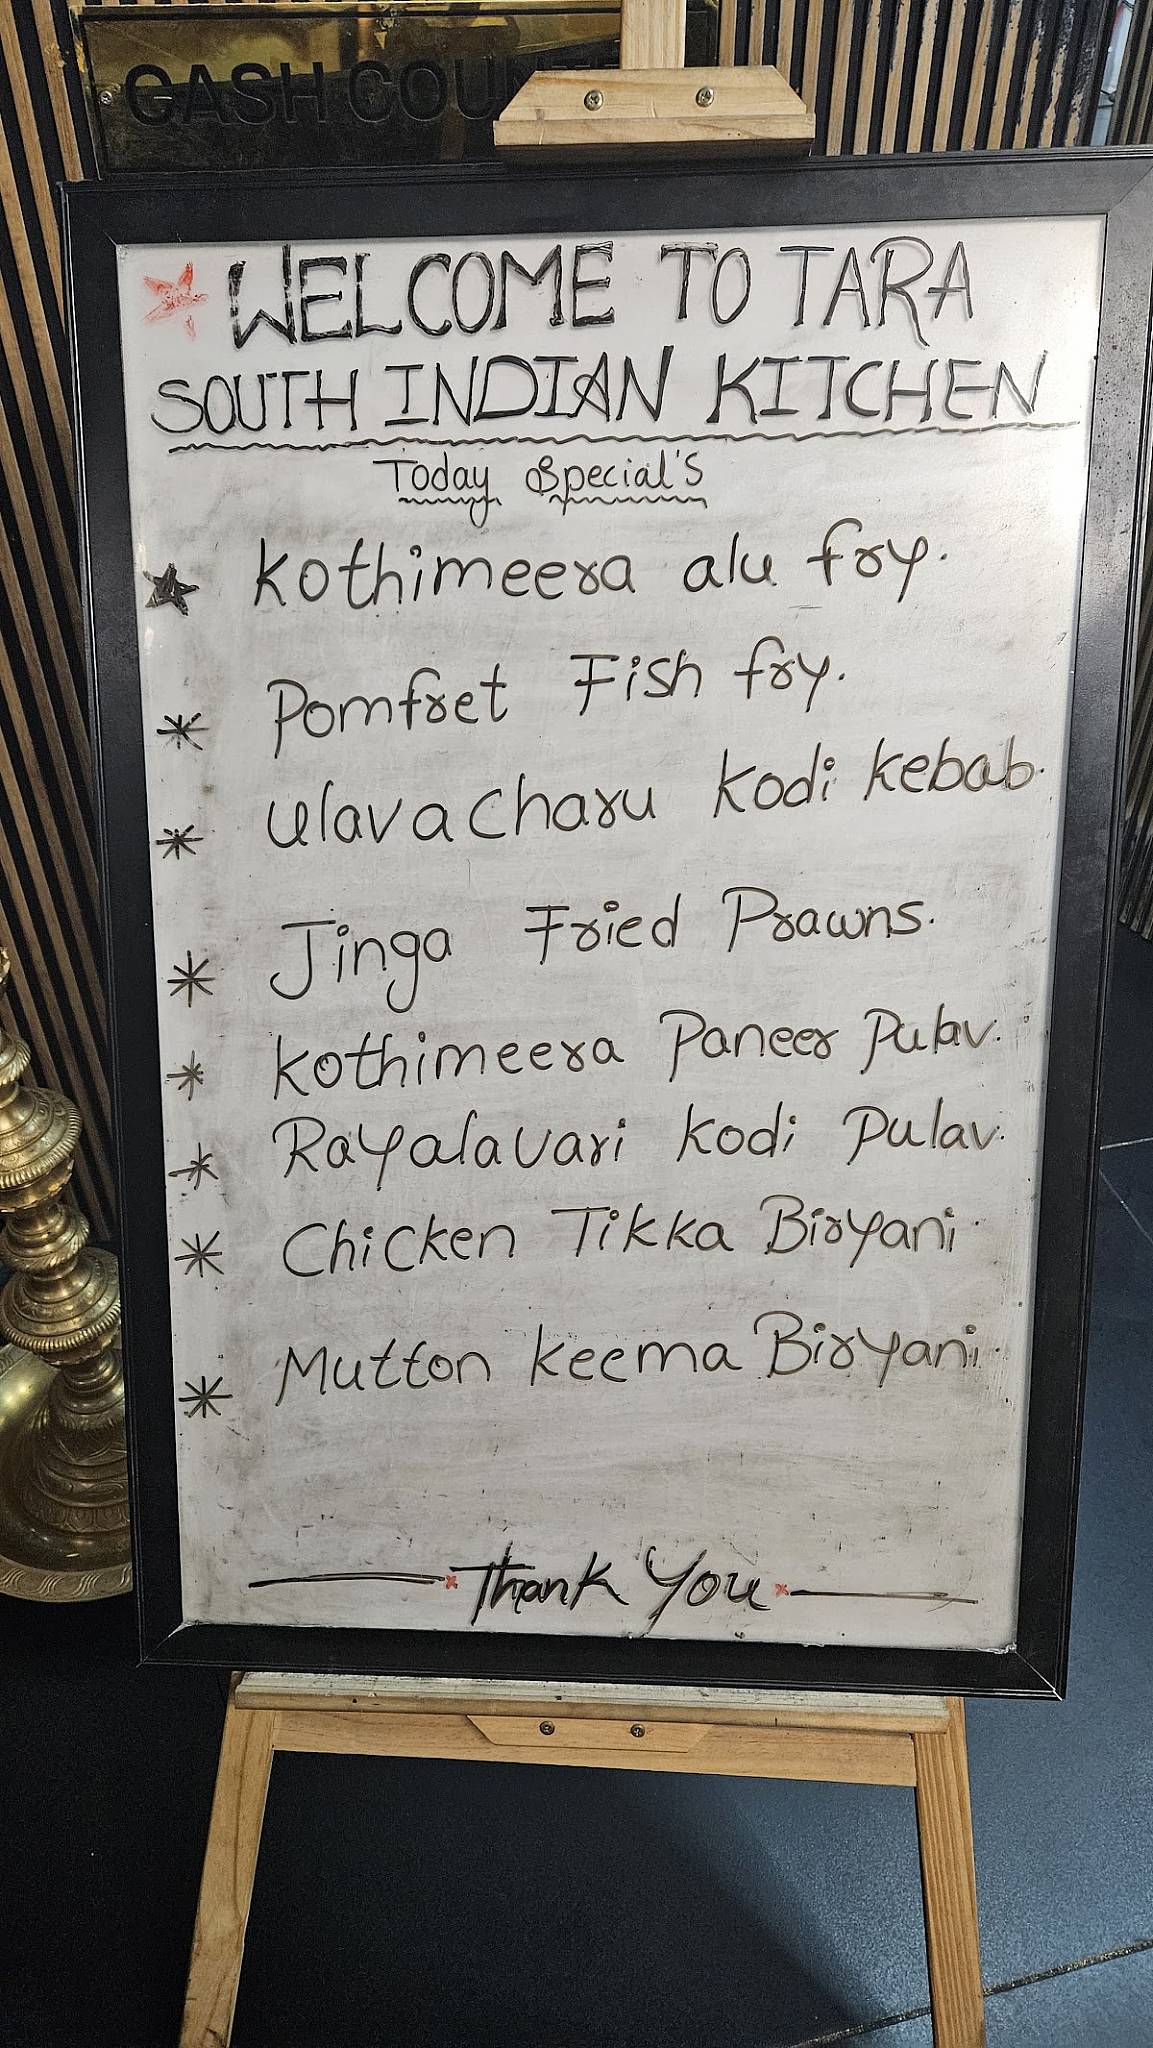 CASH COUNTE
WELCOME TO TARA
SOUTH INDIAN KITCHEN
Today Special's
Kothimeera alu fry.
Pomfret Fish fry.
Ulavacharu Kodi Kebab.
Jinga Fried Prawns.
Kothimeera Paneer Pulav.
Rayalavari Kodi Pulav.
Chicken Tikka Biryani.
Mutton Keema Biryani.
Thank You